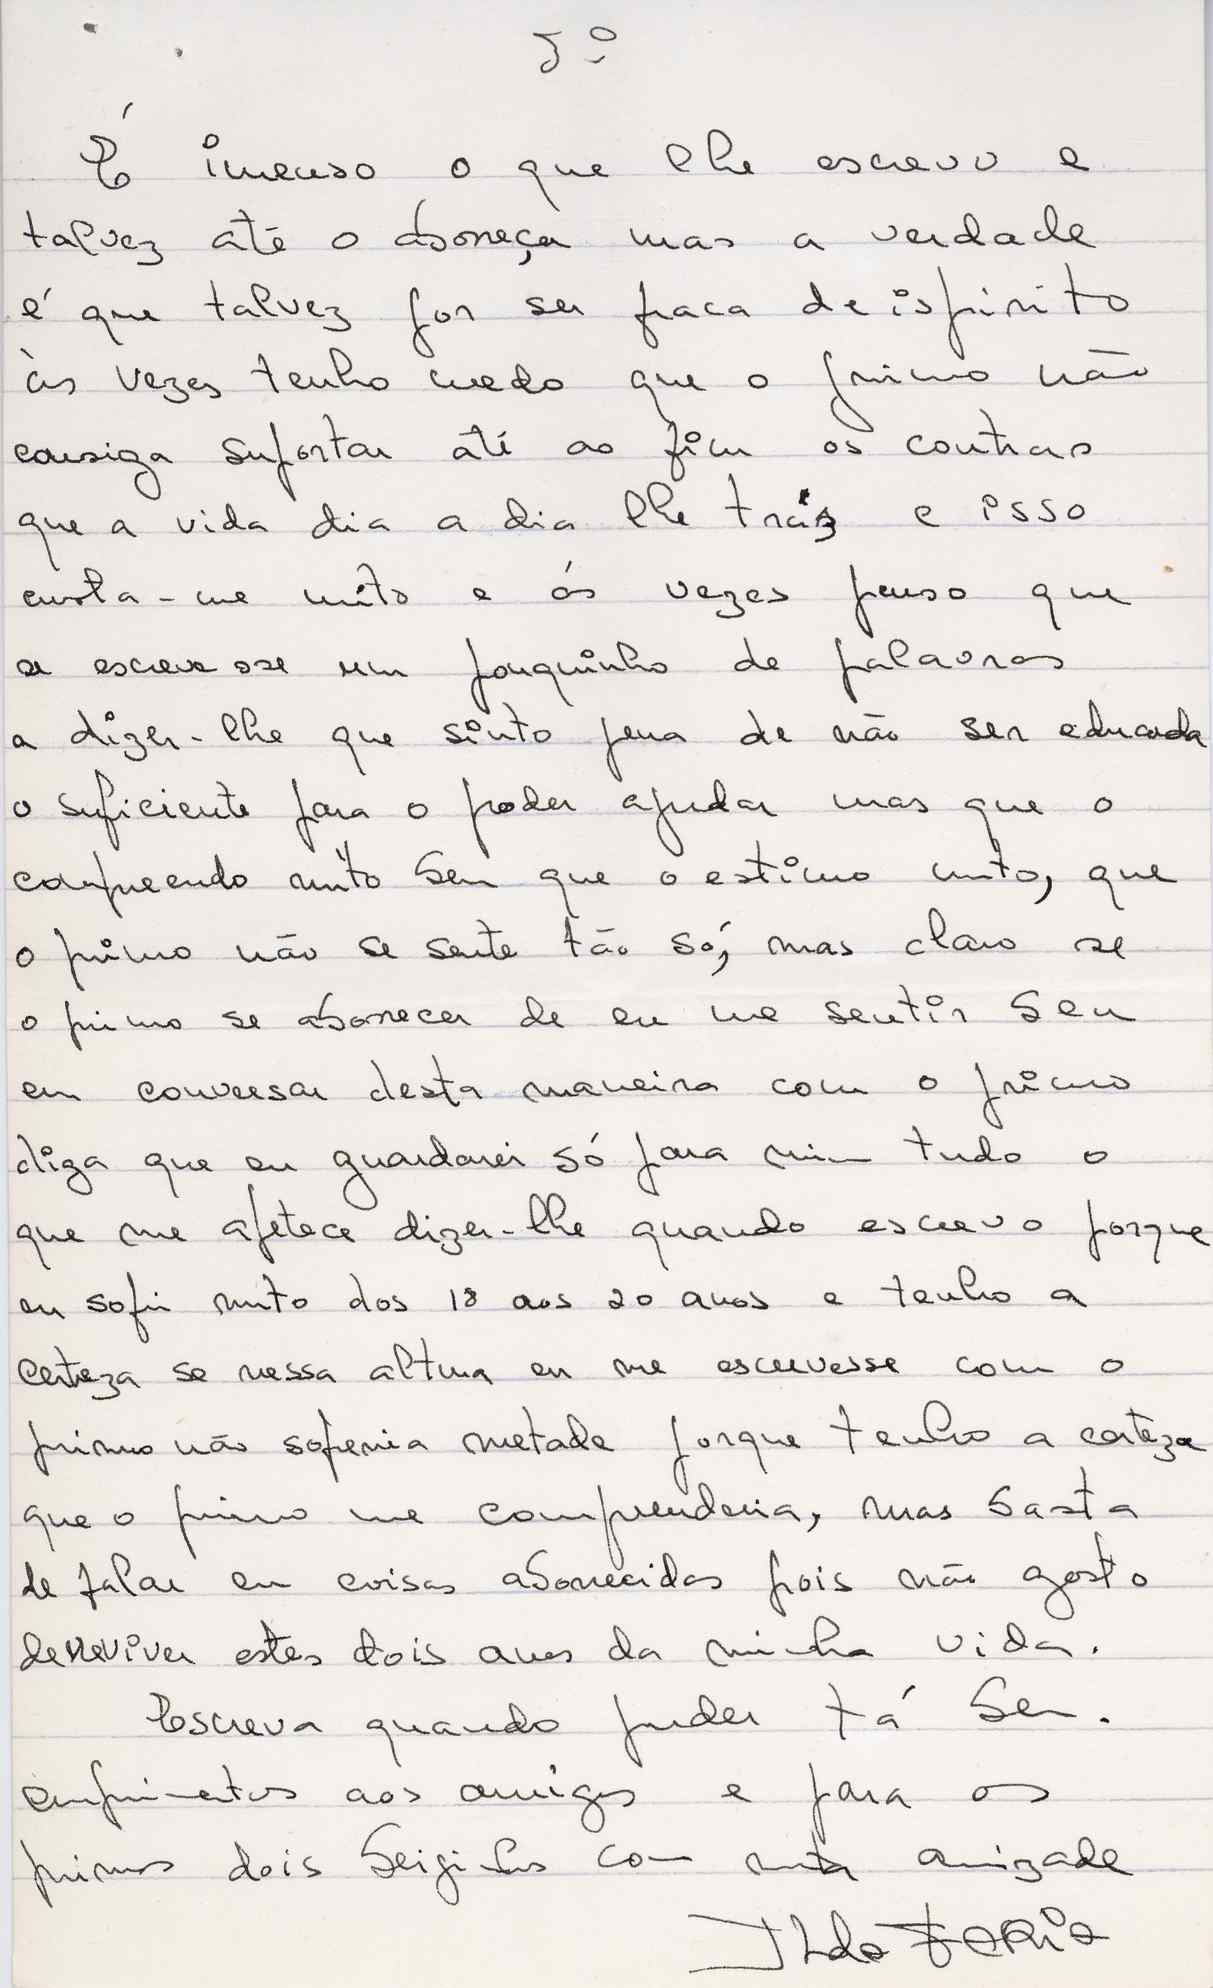 5º
É imenso o que lhe escrevo e
talvez até o aborreça mas a verdade
é que talvez por ser fraca de ispirito
às vezes tenho medo que o primo não
consiga suportar até ao fim os contras
que a vida dia a dia lhe tráz e isso
custa-me mito e ás vezes penso que
se escrevesse um pouquinho de palavras
a dizer-lhe que sinto pena de não ser educada
o suficiente para o poder ajudar mas que o
compreendo mito bem que o estimo mito, que
o primo não se sente tão só, mas claro se
o primo se aborrecer de eu me sentir bem
em conversar desta maneira com o primo
diga que eu guardarei só para mim tudo o
que me apetece dizer-lhe quando escrevo porque
eu sofri mito dos 18 aos 20 anos e tenho a
certeza se nessa altura eu me escrevesse com o
primo não soferia metade porque tenho a certeza
que o primo me comprenderia, mas basta
de falar em coisas aborrecidas pois não gosto
de reviver estes dois anos da minha vida.
Escreva quando puder tá bem.
cumprimentos aos amigos e para os
primos dois beiginhos com mita amizade
Ilda Faria